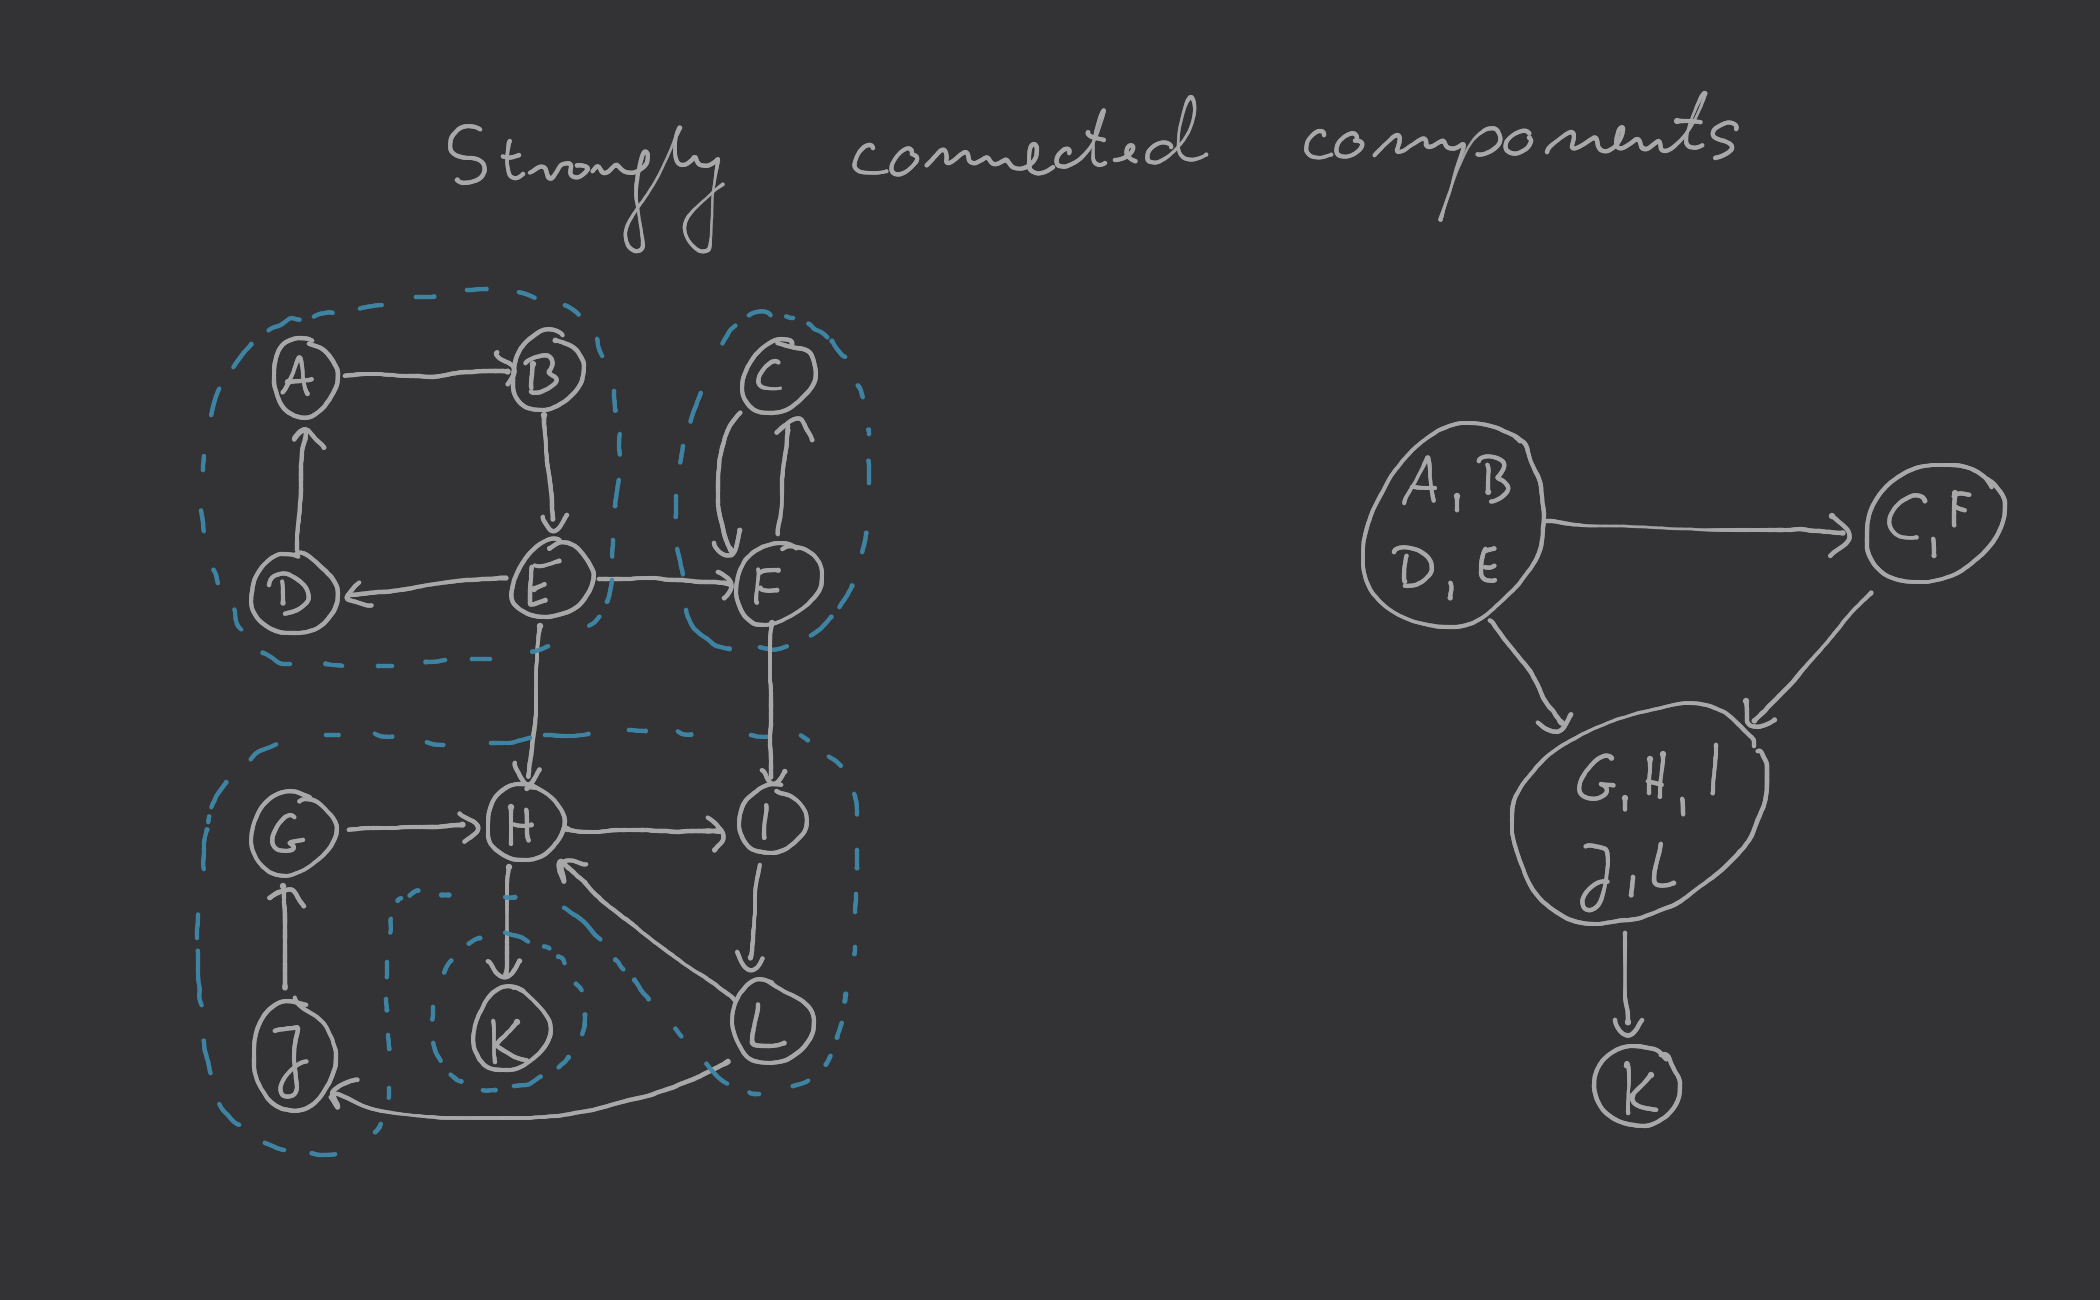 Strongly connected components
A B C
D E F
G H I
J K L
A, B
D, E
C, F
G, H, I
J, L
K